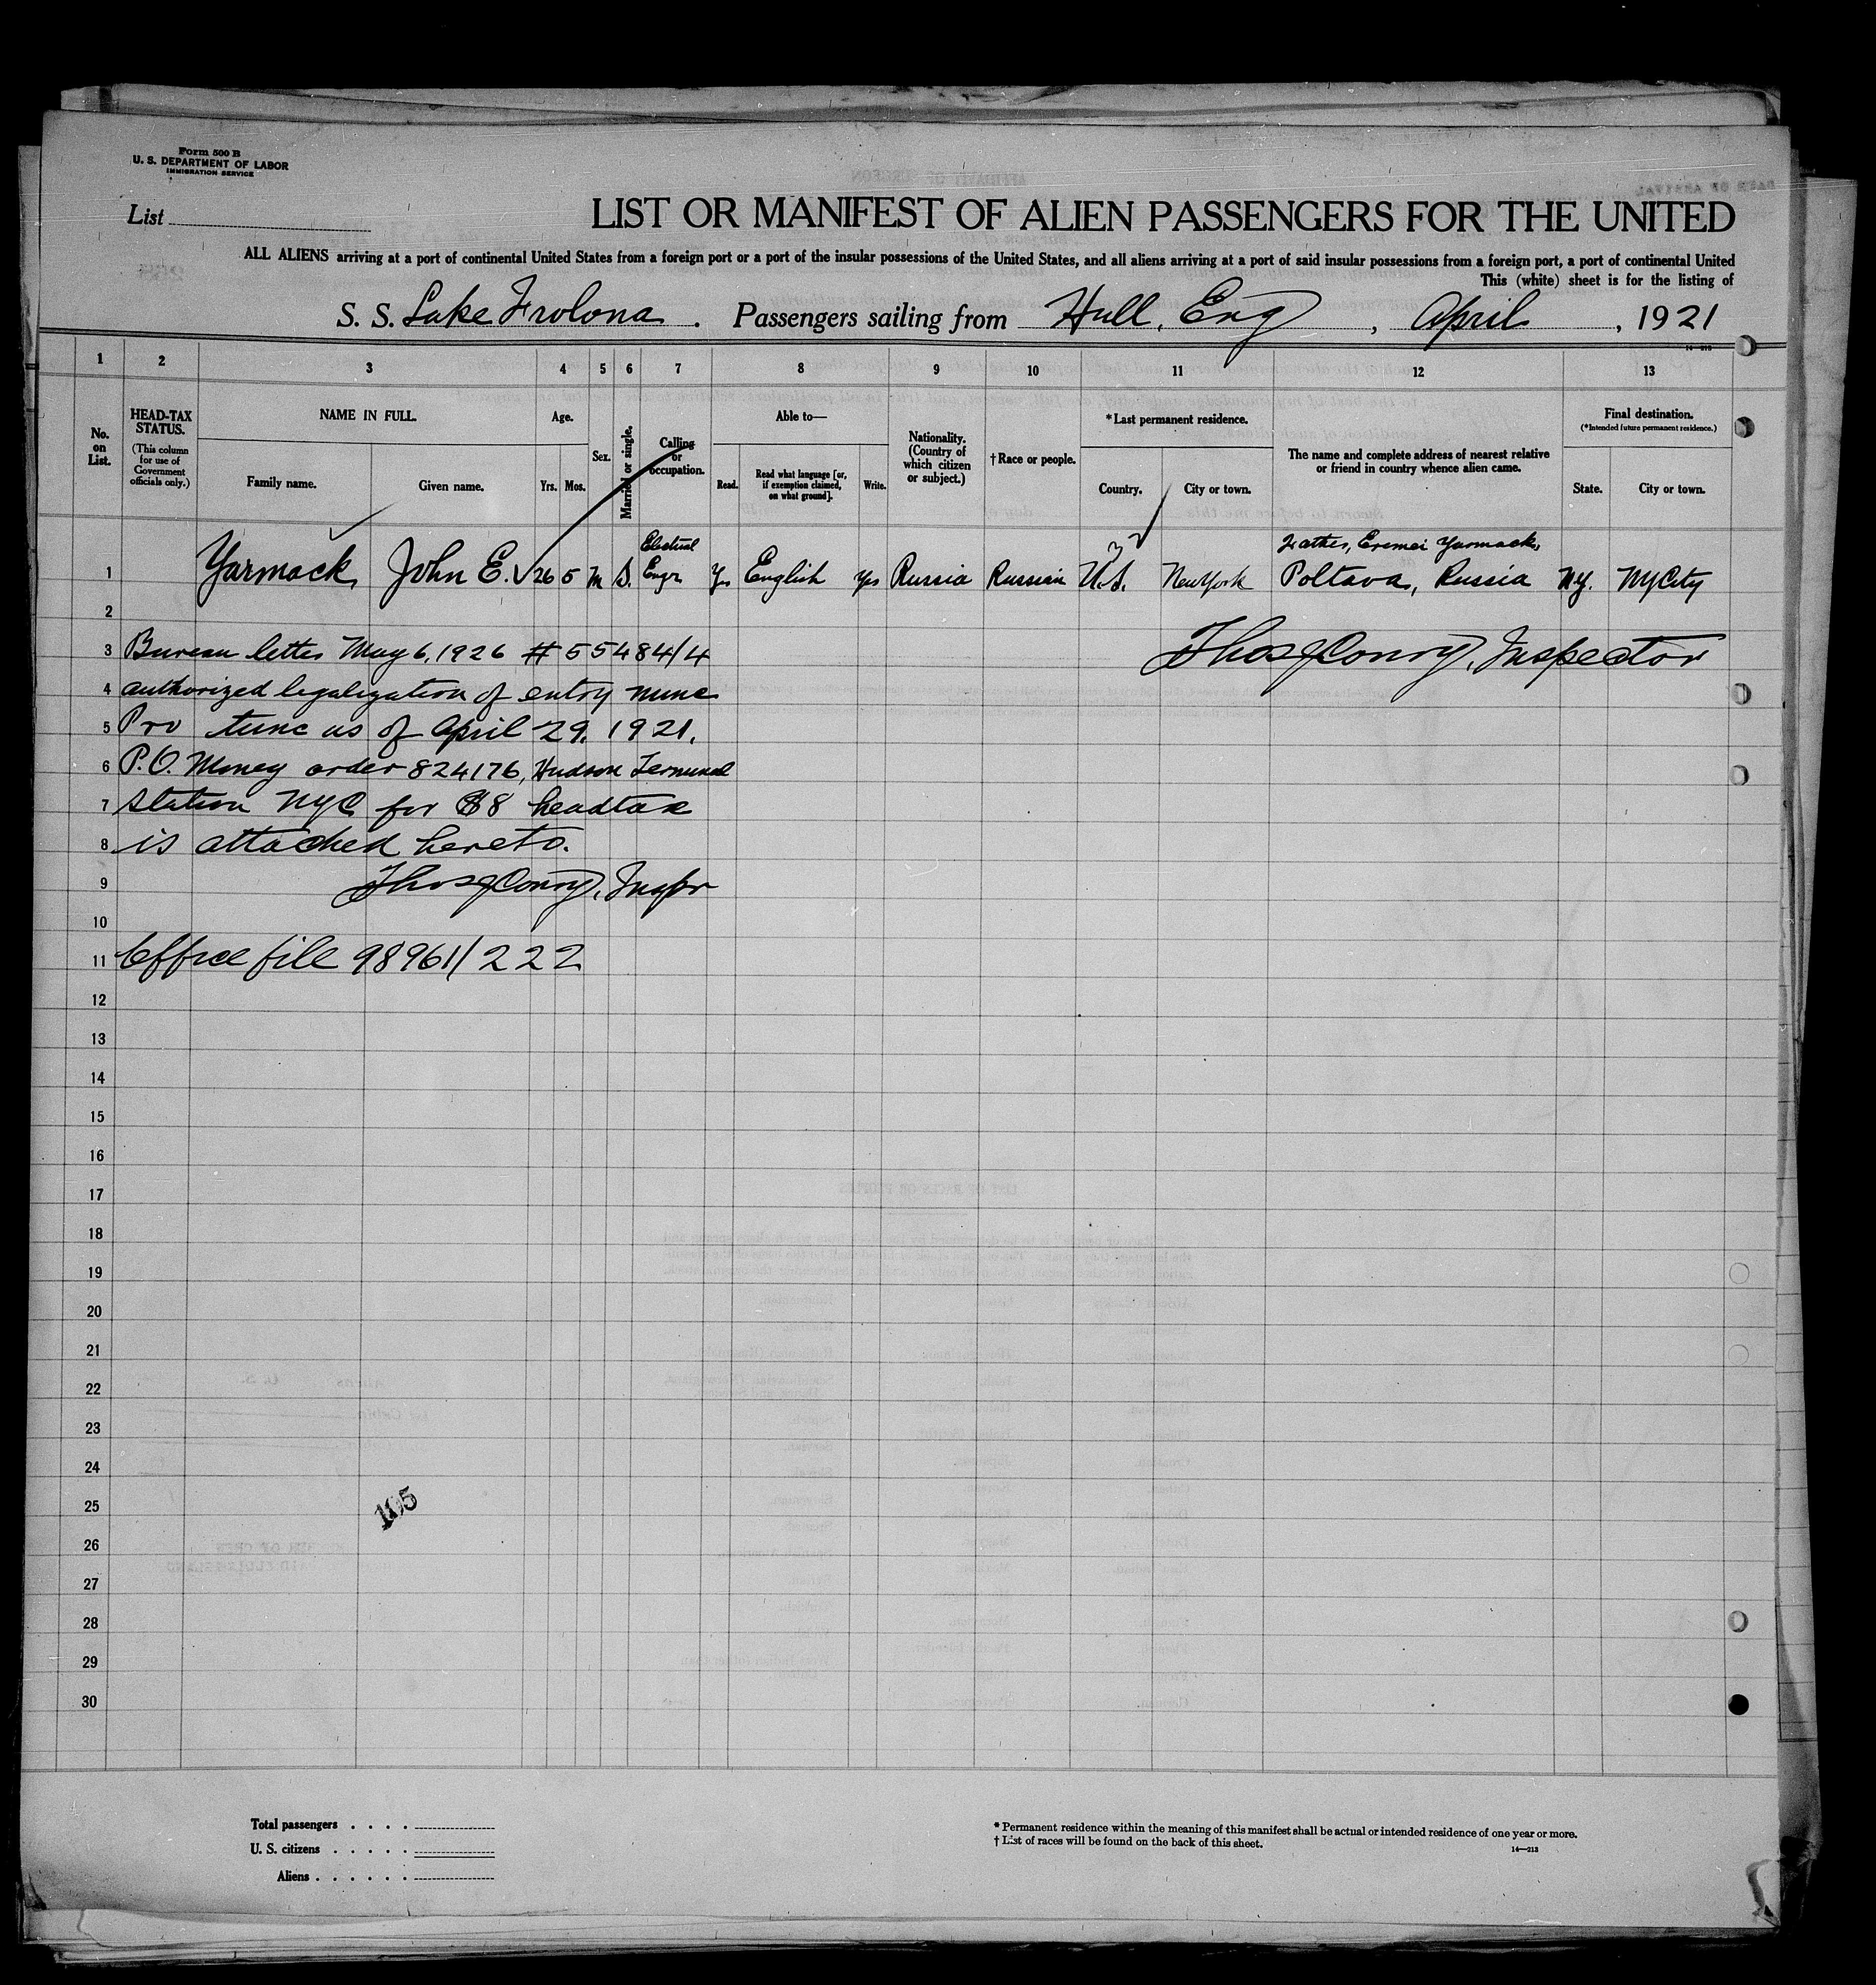 Form 500 B
U. S. DEPARTMENT OF LABOR
IMMIGRATION SERVICE
List
LIST OR MANIFEST OF ALIEN PASSENGERS FOR THE UNITED
ALL ALIENS arriving at a port of continental United States from a foreign port or a port of the insular possessions of the United States, and all aliens arriving at a port of said insular possessions from a foreign port, a port of continental United
This (white) sheet is for the listing of
S. S. Lake Frolona. Passengers sailing from Hull, Eng, April, 1921
14—213
1 2 3 4 5 6 7 8 9 10 11 12 13
No. on List.
HEAD-TAX STATUS.
(This column for use of Government officials only.)
NAME IN FULL.
Family name. Given name.
Age.
Yrs. Mos.
Sex.
Married or single.
Calling or occupation.
Able to—
Read. Read what language [or, if exemption claimed, on what ground]. Write.
Nationality. (Country of which citizen or subject.)
†Race or people.
*Last permanent residence.
Country. City or town.
The name and complete address of nearest relative or friend in country whence alien came.
Final destination.
(*Intended future permanent residence.)
State. City or town.
1 Yarmack John E. 26 5 M S. Electual Engr Ys English Yes Russia Russian U.S. New York Father, Eremei Yarmack, Poltava, Russia N.Y. NYCity
2
3 Bureau letter May 6, 1926 # 55484/4 Thos J Conry, Inspector
4 authorized legalization of entry nunc
5 Pro tunc as of April 29, 1921.
6 P.O. Money order 824176, Hudson Terminal
7 Station NYC for $8 headtax
8 is attached hereto.
9 Thos J Conry, Inspr
10
11 Office file 98961/222
12
13
14
15
16
17
18
19
20
21
22
23
24
25
105
26
27
28
29
30
Total passengers
U. S. citizens
Aliens
* Permanent residence within the meaning of this manifest shall be actual or intended residence of one year or more.
† List of races will be found on the back of this sheet.
14—213